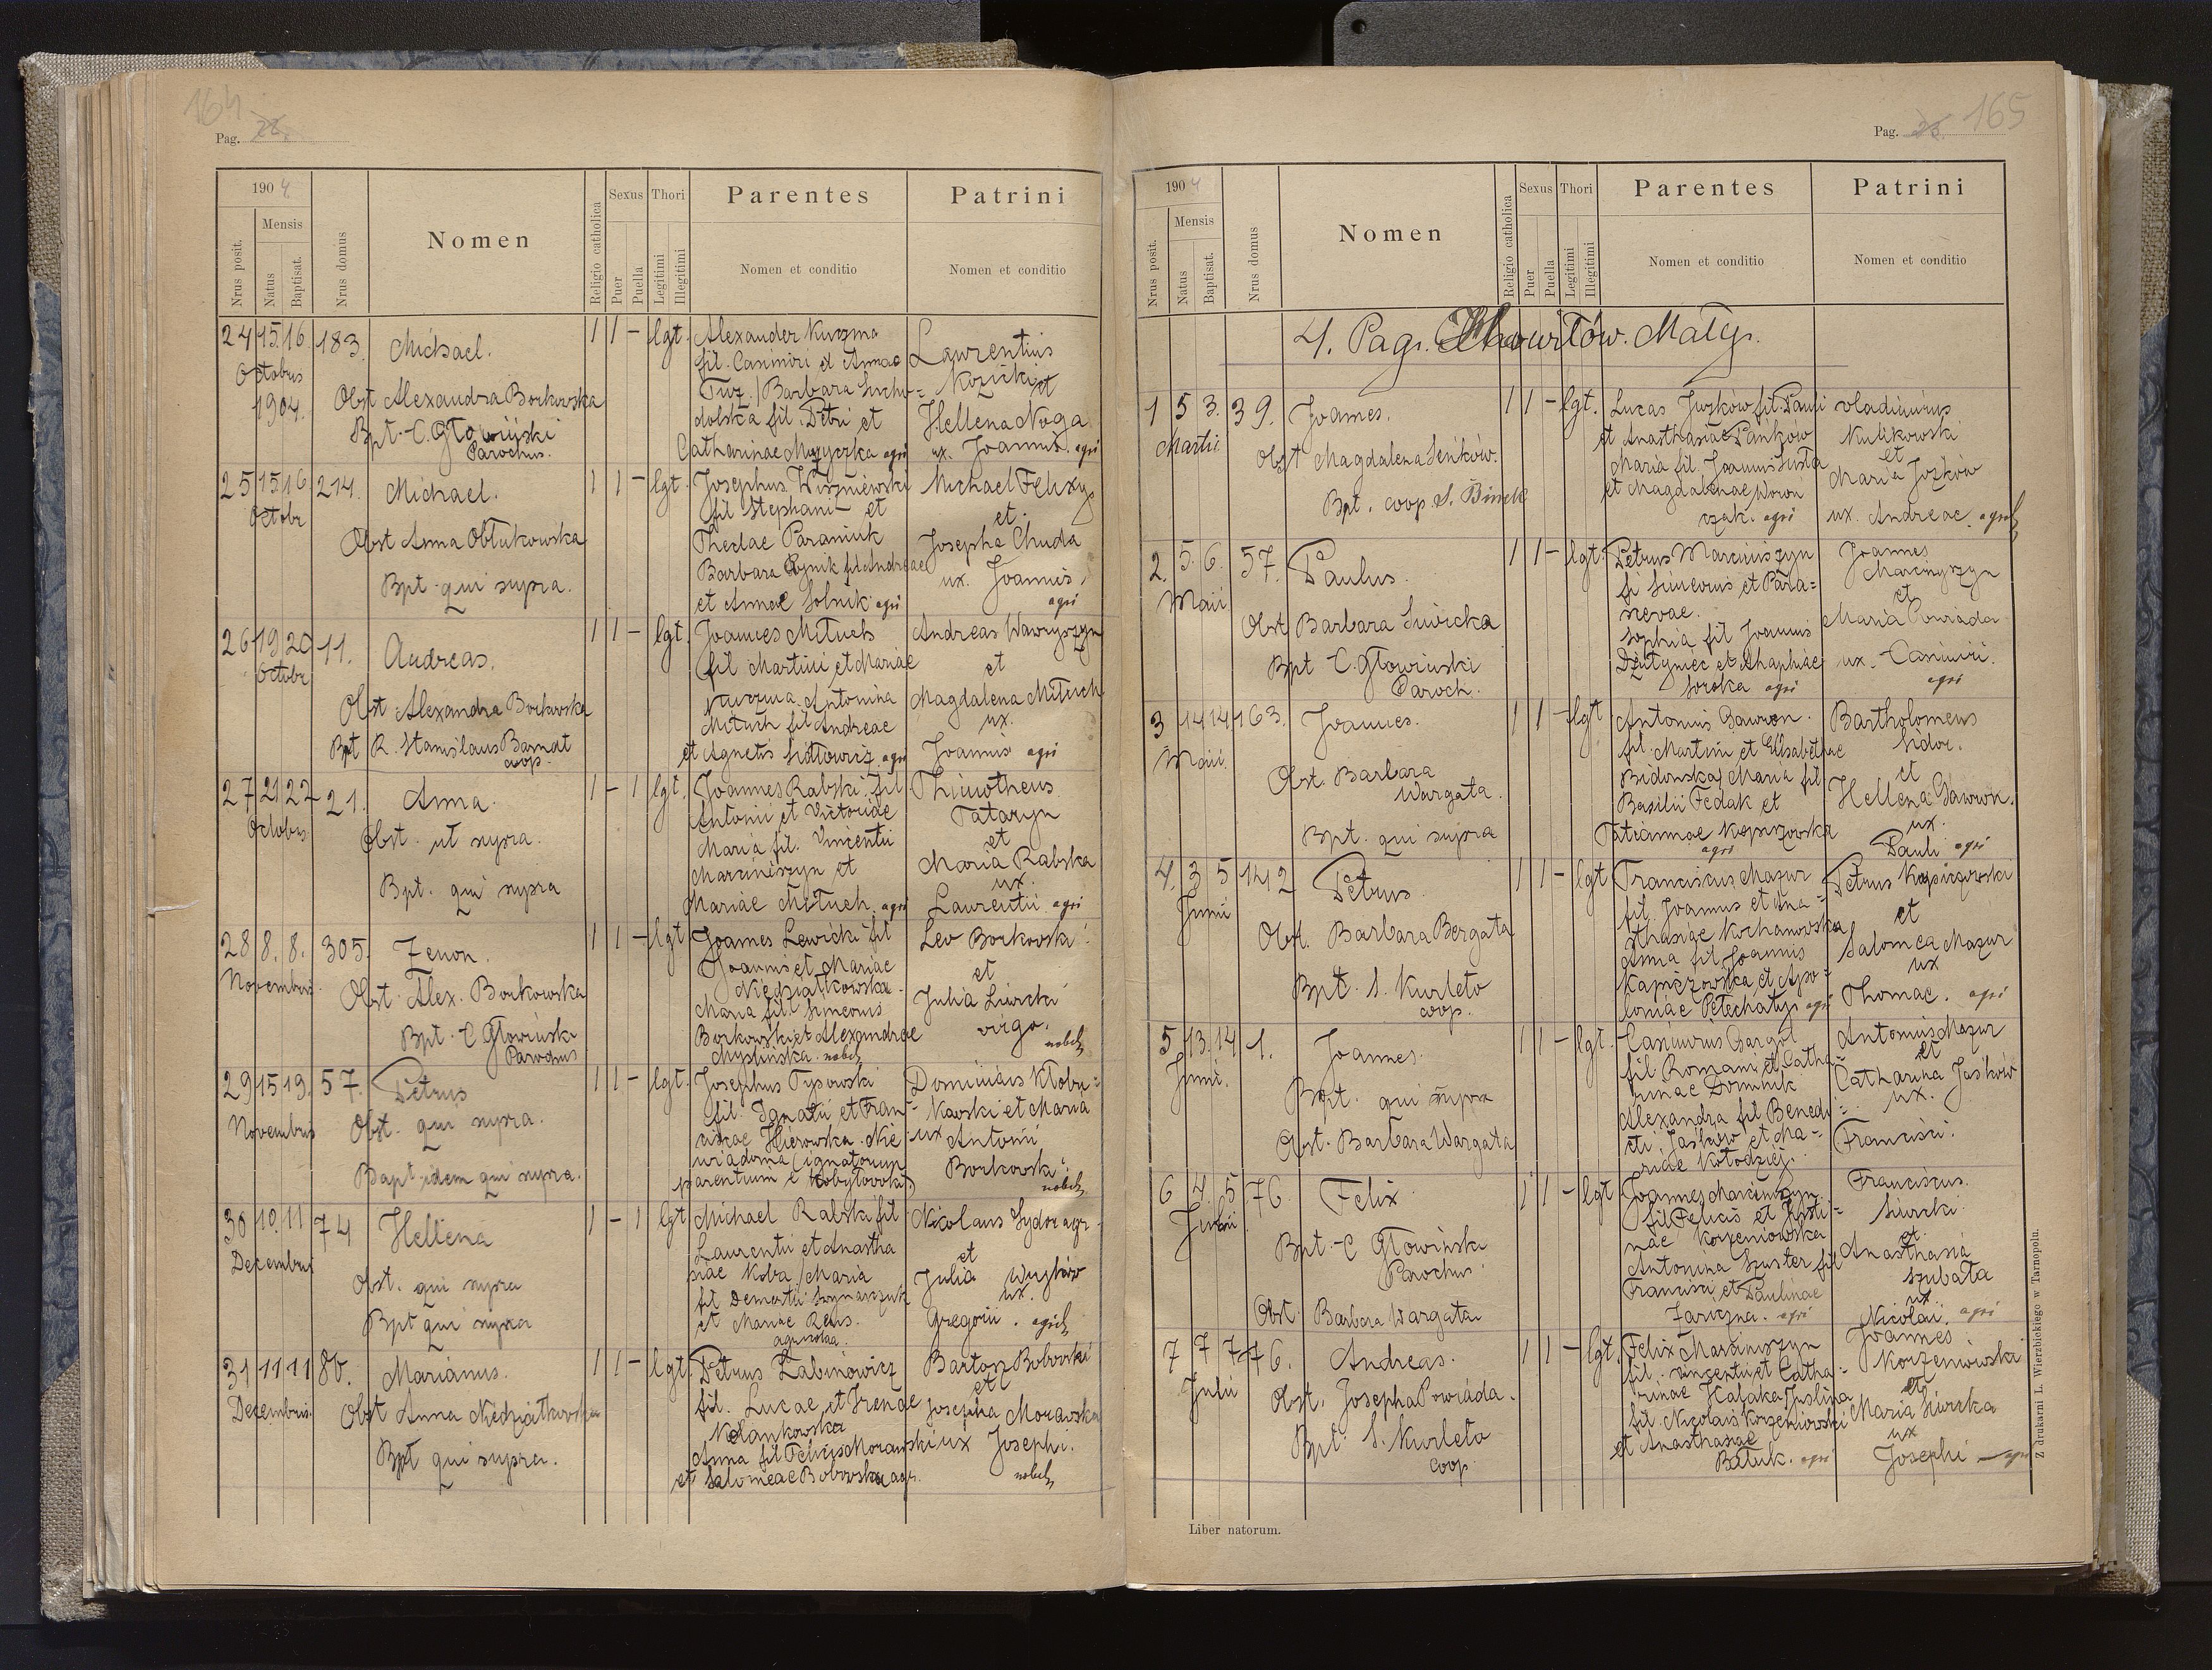 164
Pag. 22.
1904
Nrus posit.
Mensis
Natus
Baptisat.
Nrus domus
Nomen
Religio catholica
Sexus
Puer
Puella
Thori
Legitimi
Illegitimi
Parentes
Nomen et conditio
Patrini
Nomen et conditio
24 15. 16. 183. Michael. 1 1 – lgt. Alexander Kuczma
Octobris
1904.
fil. Casimiri et Annae
Tuz / Barbara Sucho=
dolska fil. Petri et
Catharinae Muzyczka agri
Laurentius
Kozicki et
Hellena Noga
ux. Joannis. agri
Obst Alexandra Borkowska
Bpt. C. Głowiński
Parochus.
25 15 16 214. Michael. 1 1 – lgt.
Octobr
Josephus Wiszniewski
fil Stephani et
Theclae Paraniuk
Barbara fil Andreae
et Annae Solnik agri
Michael
et
Josepha Chuda
ux. Joannis,
agri
Obst Anna Obtukowska
Bpt. qui supra.
26 19 20 11. Andreas. 1 1 – lgt.
Octobr
Joannes Mituch
fil Martini et Mariae
Kuczma. Antonina
Mituch fil Andreae
et Agnetis agri
Andreas Wawryszyn
et
Magdalena Mituch
ux.
Joannis agri
Obst Alexandra Borkowska
Bpt R. Stanislaus Barndt
coop.
27 21 22 21. Anna. 1 – 1 lgt.
Octobris
Joannes Rabski fil
Antonii et Victoriae
Maria fil. Vincentii
Marciniszyn et
Mariae Mituch. agri
Thimotheus
Tataryn
et
Maria Rabska
ux.
Laurentii agri
Obst. ut supra.
Bpt. qui supra
28 8. 8. 305. Zenon. 1 1 – lgt
Novembris
Joannes Lewicki fil
Joannis et Mariae
Niedziałkowska
Maria fil. Simeonis
Borkowski et Alexandrae
Myslinska. nobiles
Leo Borkowski
et
Julia Siwicki
virgo.
nobiles
Obst. Alex. Borkowska
Bpt. C Głowiński
Parochus
29 15 19. 57. Petrus 1 1 – lgt.
Novembris
Josephus Tysowski
fil. Ignatii et Fran=
ciscae Hierowska. Nie
wiadoma (ignatorum
parentum Kobyłowska)
Dominicus Kłobu=
kowski et Maria
ux Antonii
Borkowski
nobiles
Obst. qui supra.
Bapt. idem qui supra.
30 10. 11 74 Hellena 1 – 1 lgt
Decembris
Michael Rabski fil
Laurentii et Anastha
siae Koba / Maria
fil Demetrii
et Mariae Rens.
agricolae.
Nicolaus Sydor agr.
et
Julia
ux.
Gregorii. agricolae
Obst. qui supra
Bpt qui supra
31 11 11 80. Marianus. 1 1 – lgt.
Decembris.
Petrus Zabinowicz
fil. Lucae et Irenae
Anna fil Felicis Morawski
et Salomeae Bobowska agr.
Barton Bobowski
et
Josepha Morawska
ux Josephi.
nobiles
Obst Anna Niedziałkowska
Bpt qui supra.
165
Pag. 23.
1904
Nrus posit.
Mensis
Natus
Baptisat.
Nrus domus
Nomen
Religio catholica
Sexus
Puer
Puella
Thori
Legitimi
Illegitimi
Parentes
Nomen et conditio
Patrini
Nomen et conditio
4. Pag. Małyj.
1 5 3. 39. Joannes. 1 1 – lgt.
Martii
Lucas Juzków fil. Pauli
et Anasthasiae Pańków
Maria fil. Joannis Szusta
et Magdalenae Wowni
czak. agri
Vladimirus
Kulikowski
et
Maria Jozków
ux. Andreae. agricolae
Obst Magdalena Seńków.
Bpt. coop. S. Binek
2. 5. 6. 57. Paulus. 1 1 – lgt.
Maii
Petrus Marciniszyn
fi Simeonis et Para=
scevae.
Sophia fil Joannis
Dżutyniec et Ahaphiae
Soroka agri
Joannes
Marciniszyn
et
Maria Powiada
ux. Casimiri.
agri
Obst Barbara Siwicka
Bpt C. Głowiński
Paroch.
3 14 14 163. Joannes. 1 1 – lgt
Maii.
Antonius Gawron.
fil. Martini et Elisabethae
Bidowska / Maria fil
Basilii Fedak et
Tatiannae Kopczowska
agri
Bartholomeus
Sidor.
et
Hellena Gawron.
ux.
Pauli agri
Obst. Barbara
Wargata.
Bpt. qui supra
4. 3 5 142 Petrus. 1 1 – lgt
Junii
Franciscus Mazur
fil. Joannis et Ana=
sthasiae Kochanowska
Anna fil Joannis
Kapiczowska et Apo=
loniae Petechatyj agri
Petrus Kapiczowski
et
Salomea Mazur
ux
Thomae. agri
Obst. Barbara Bergata
Bpt. S. Kurleto
coop.
5 13. 14 1. Joannes. 1 1 – lgt.
Junii.
Casimirus Gargol
fil Romani et Catha=
rinae Dominik
Alexandra fil Benedi=
cti Jaśków et Ma=
riae Kołodziej.
Antonius Mazur
et
Catharina Jaśków
ux.
Francisci.
Bpt. qui supra
Obst. Barbara Wargata
6 4. 5 76. Felix 1 1 – lgt
Julii
Joannes Marciniszyn
fil Felicis et Justi=
nae Korzeniowska
Antonina Szuster fil
Francisci et Paulinae
Zariczna. agri
Franciscus.
Siwicki
et.
Anasthasia
Szubata
ux
Nicolai. agri
Bpt. C Głowiński
Parochus
Obst. Barbara Wargata.
7 7 7 76. Andreas. 1 1 – lgt.
Julii
Felix Marciniszyn
fil. Vincentii et Catha=
rinae Hałaka / Justina
fil. Nicolai Korzeniowski
et Anasthasiae
Bałuk. agri
Joannes
Korzeniowski
et
Maria Siwicka
ux
Josephi – agri
Obst. Josepha Powiada.
Bpt. S. Kurleto
coop.
Liber natorum.
Z drukarni L. Wierzbickiego w Tarnopolu.